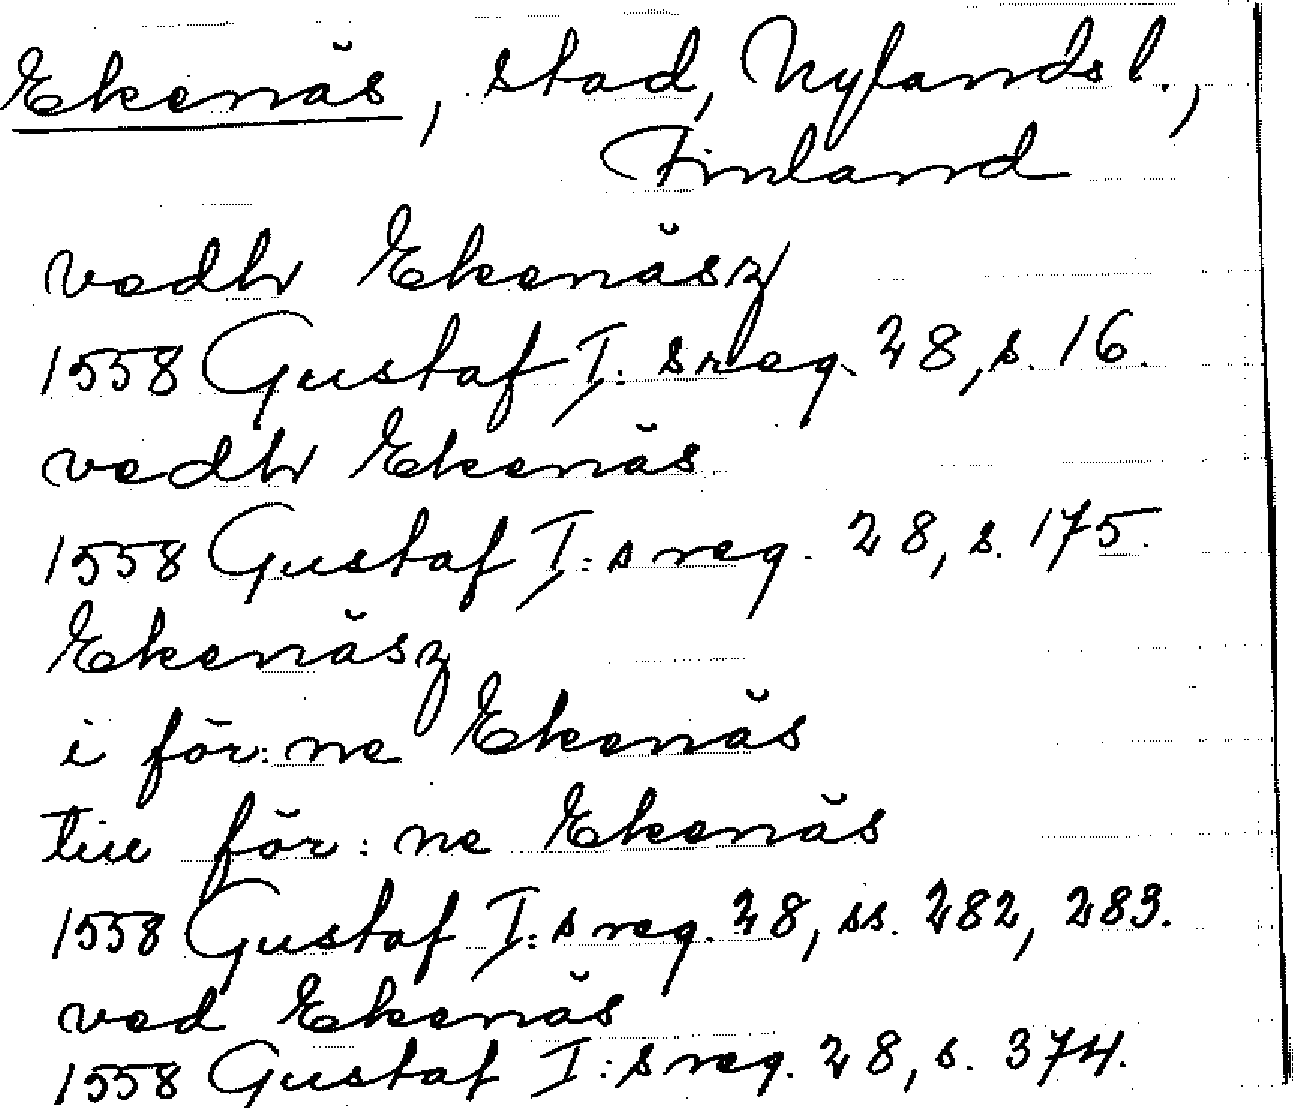 Ekenäs, stad, Nylands l.,
Finland
vedh Ekenäsz
1558 Gustaf I:s reg. 28, s. 16.
vedh Ekenäs
1558 Gustaf I:s reg. 28, s. 175.
Ekenäsz
i för:ne Ekenäs
till för:ne Ekenäs
1558 Gustaf I:s reg. 28, ss. 282, 283.
ved Ekenäs
1558 Gustaf I:s reg. 28, s. 374.